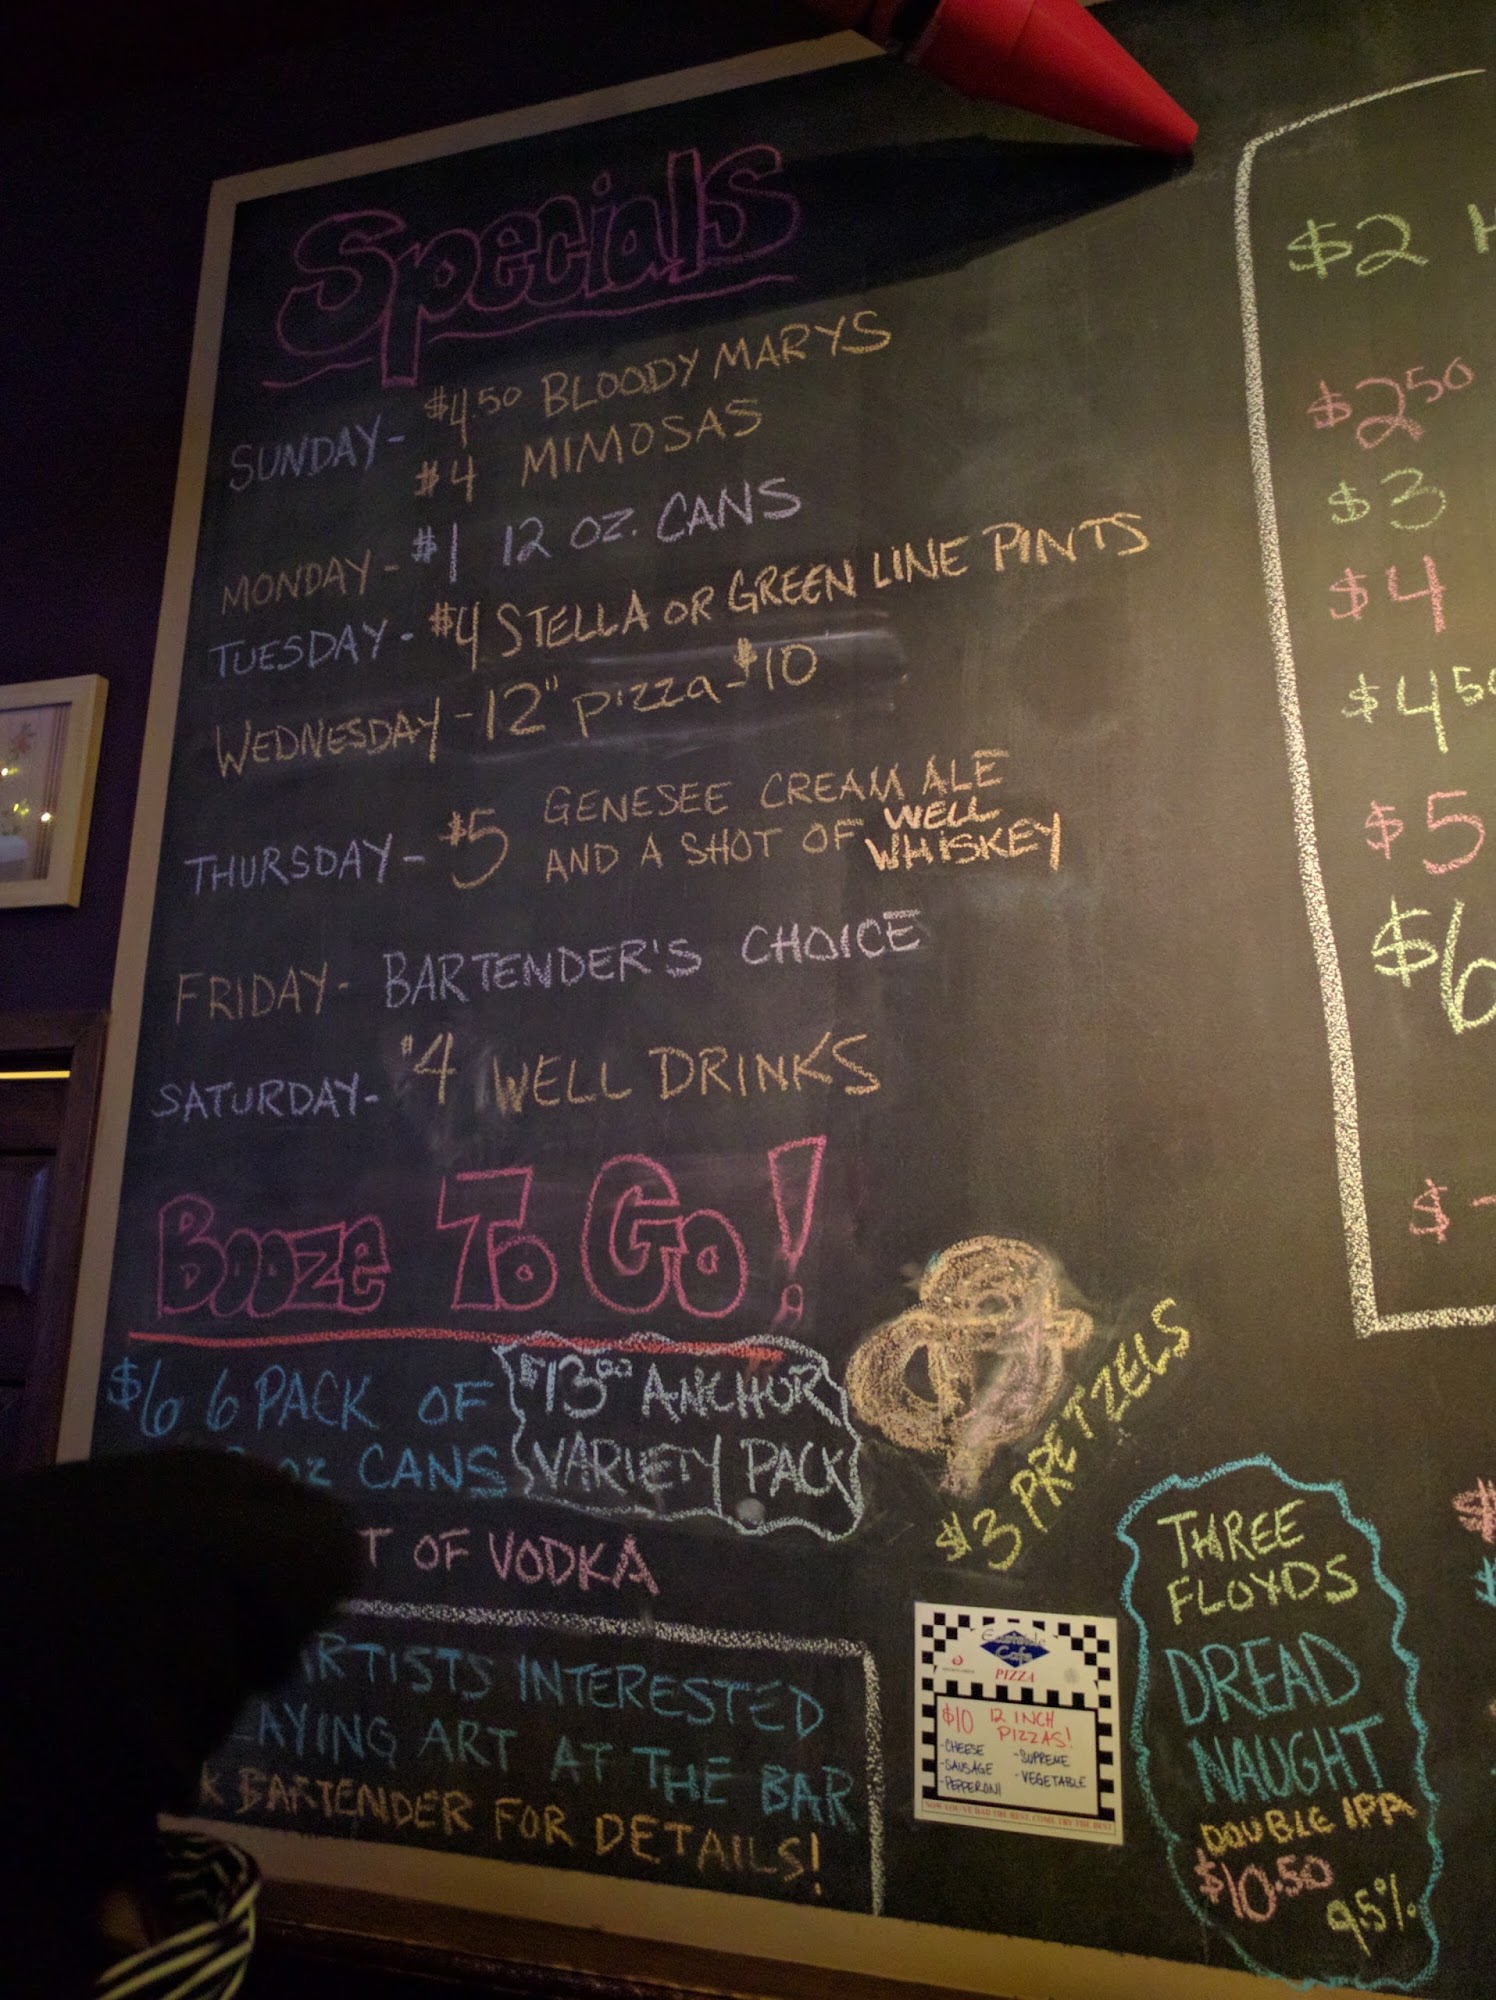 Specials
SUNDAY- $4.50 BLOODY MARYS
$4 MIMOSAS
MONDAY- $1 12 OZ. CANS
TUESDAY- $4 STELLA OR GREEN LINE PINTS
WEDNESDAY- 12" pizza - $10
THURSDAY- $5 GENESEE CREAM ALE
AND A SHOT OF WELL WHISKEY
FRIDAY- BARTENDER'S CHOICE
SATURDAY- $4 WELL DRINKS
BOOZE TO GO!
$6 6 PACK OF
OZ CANS
$13.00 ANCHOR
VARIETY PACK
T OF VODKA
$3 PRETZELS
ARTISTS INTERESTED
AYING ART AT THE BAR
K BARTENDER FOR DETAILS!
Cafe
PIZZA
$10 12 INCH
PIZZAS!
-CHEESE
-SAUSAGE
-PEPPERONI
-SUPREME
-VEGETABLE
THREE
FLOYDS
DREAD
NAUGHT
DOUBLE IPA
$10.50
9.5%
$2 H
$2 50
$3
$4
$4 50
$5
$6
$